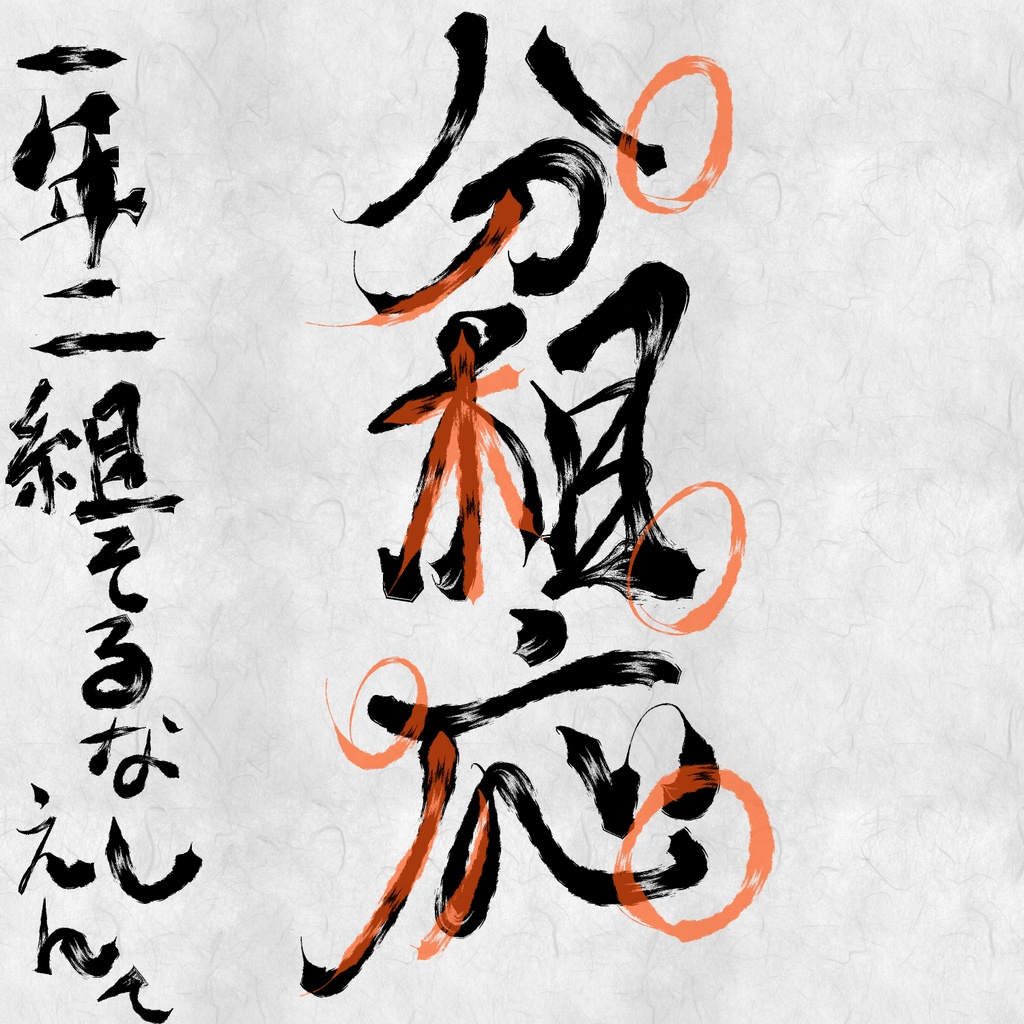 分組応
一年二組そるなしえん